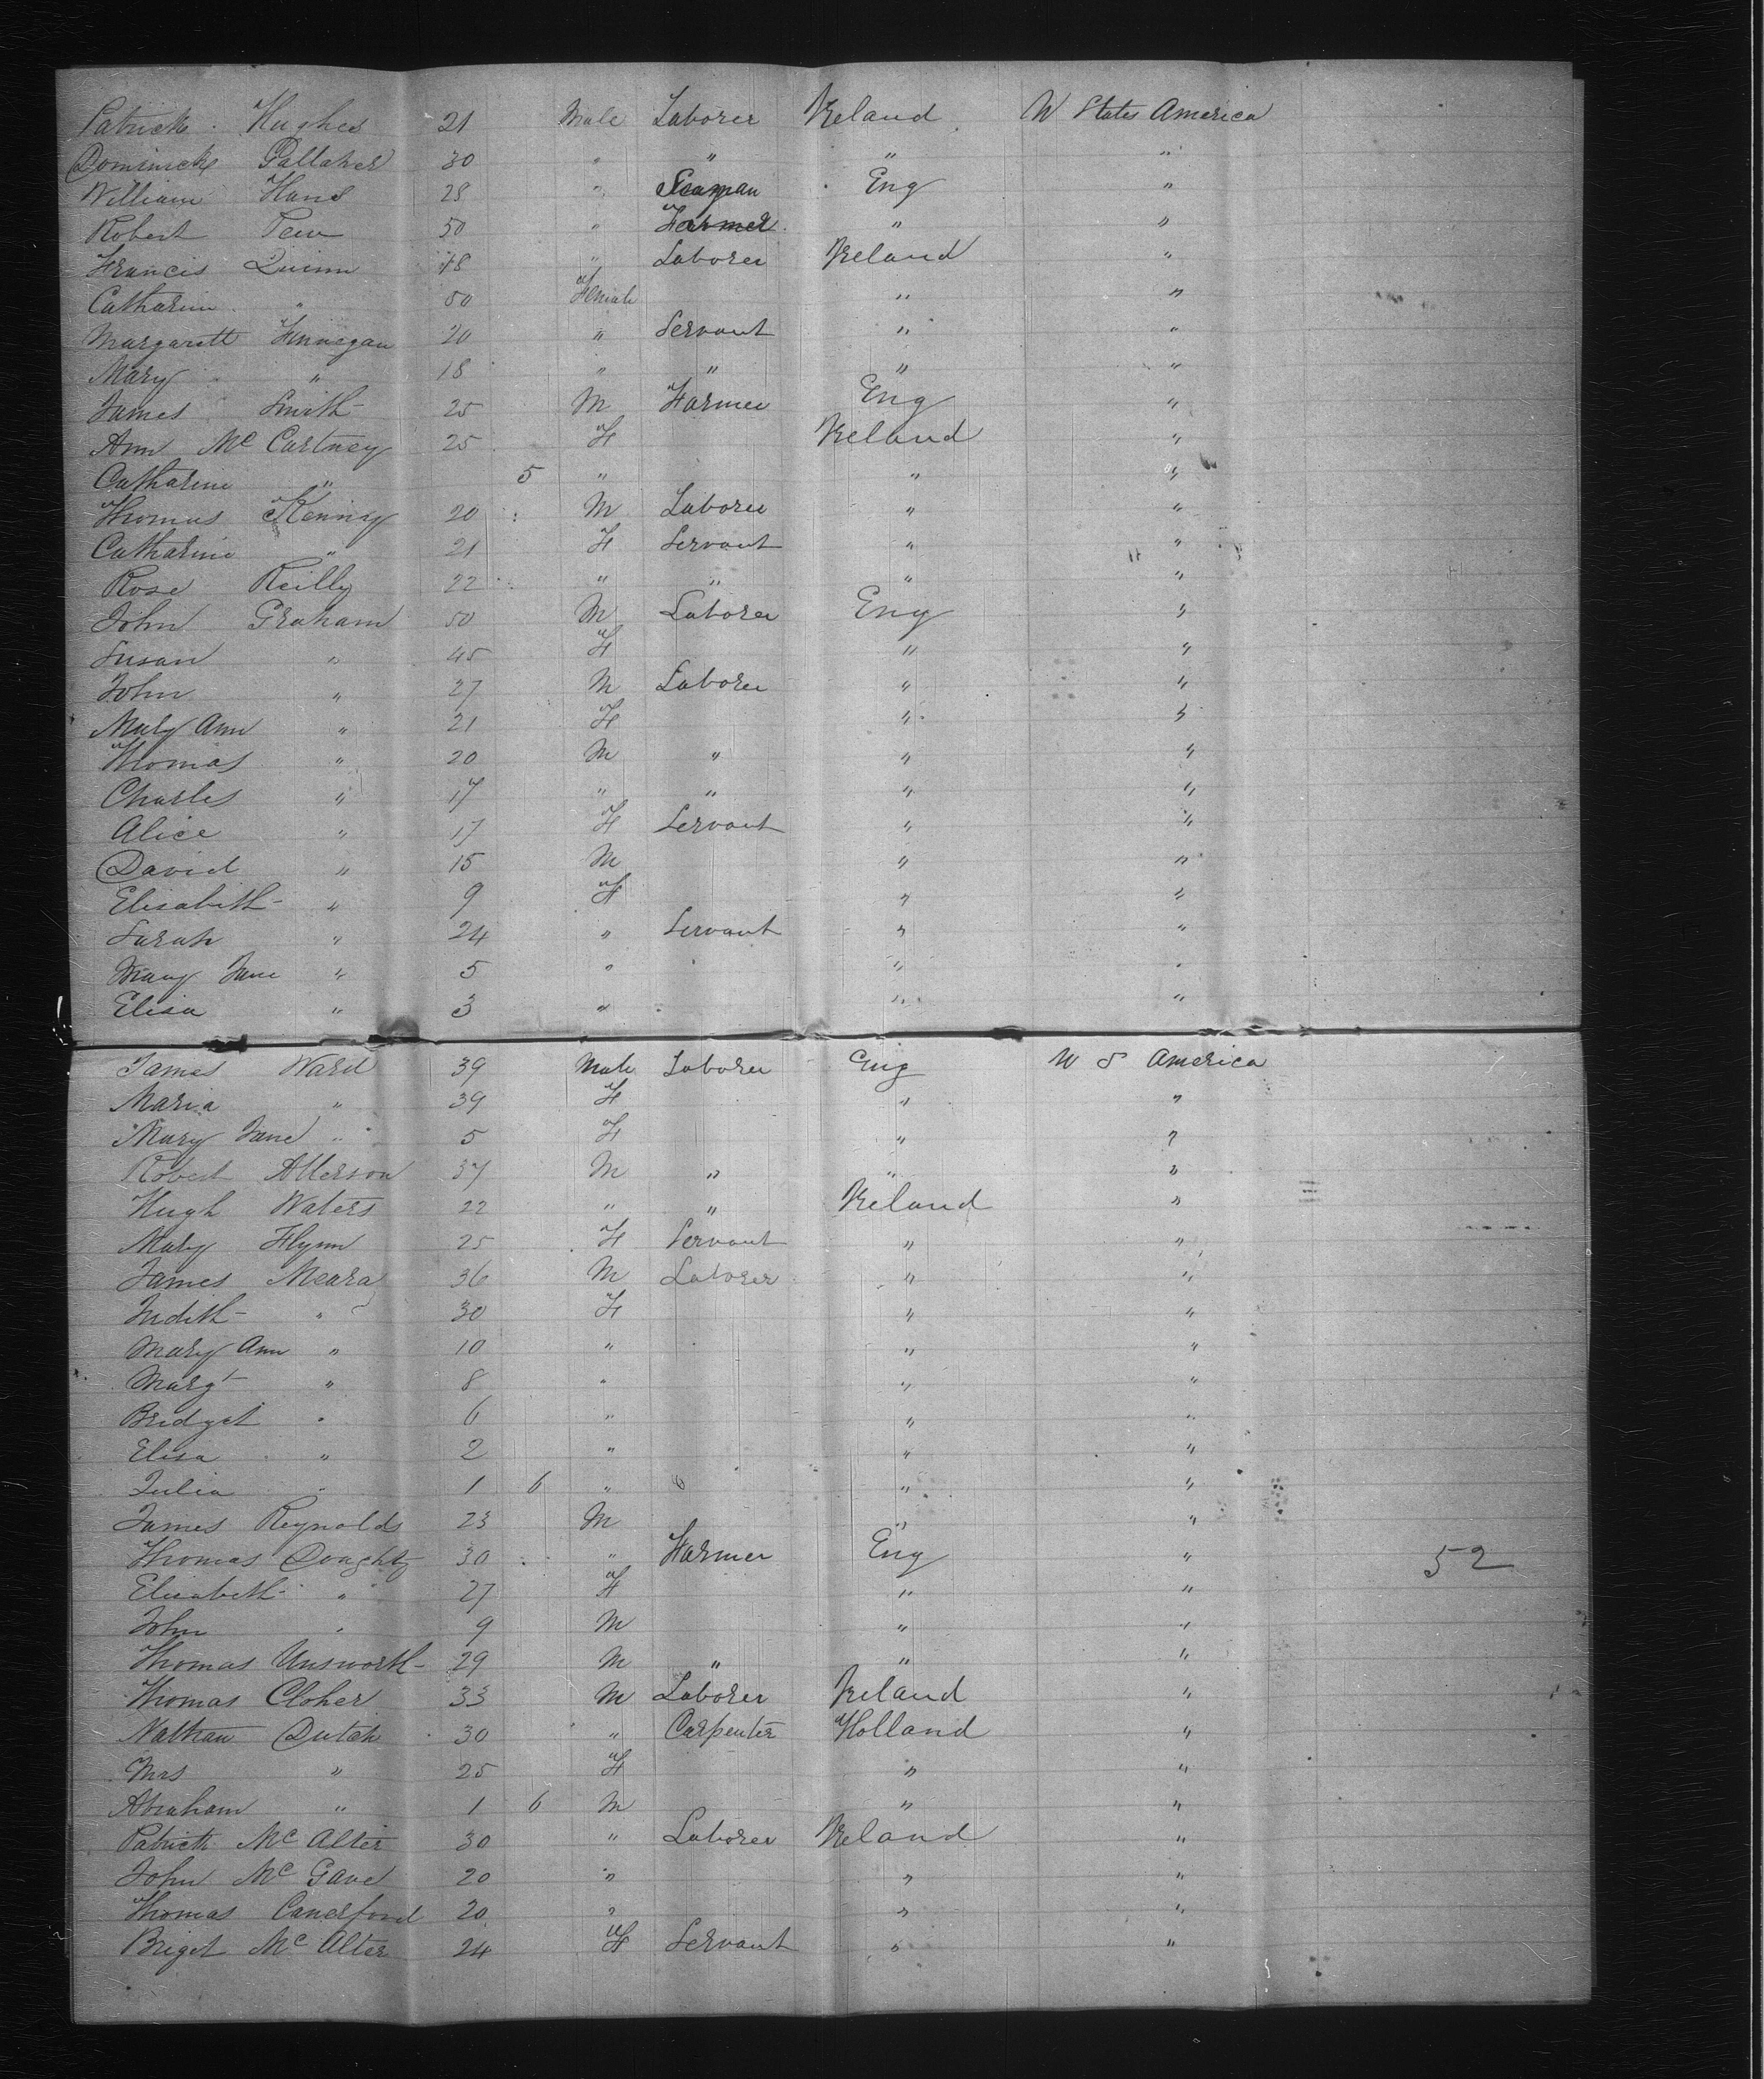 Patrick Hughes 21 Male Laborer Ireland U States America
Dominick Gallaher 30 " " " "
William Hand 28 " Seaman Eng "
Robert 50 " Farmer " "
Francis Quinn 48 " Laborer Ireland "
Catharine " 50 Female " "
Margarett Finnegan 20 " Servant " "
Mary " 18 " " " "
James Smith 25 M Farmer Eng "
Ann Mc Cartney 25 F Ireland "
Catharine " 5 " " "
Thomas Kenny 20 M Laborer " "
Catharine " 21 F Servant " "
Rose Reilly 22 " " " "
John Graham 50 M Laborer Eng "
Susan " 45 F " "
John " 27 M Laborer " "
Mary Ann " 21 F " "
Thomas " 20 M " " "
Charles " 17 " " " "
Alice " 17 F Servant " "
David " 15 M " "
Elisabeth " 9 F " "
Sarah " 24 " Servant " "
Mary Jane " 5 " " "
Elisa " 3 " " "
James Ward 39 Male Laborer Eng U S America
Maria " 39 F " "
Mary Jane " 5 F " "
Robert Atterson 37 M " " "
Hugh Waters 22 " " Ireland "
Mary Flynn 25 F Servant " "
James Meara 36 M Laborer " "
Judith " 30 F " "
Mary Ann " 10 " " "
Margt " 8 " " "
Bridget " 6 " " "
Elisa " 2 " " "
Julia " 1 6 " " "
James Reynolds 23 M " "
Thomas Doughty 30 " Farmer Eng " 52
Elisabeth " 27 F " "
John " 9 M " "
Thomas Unsworth 29 M " " "
Thomas Cloher 33 M Laborer Ireland "
Nathan Dutch 30 " Carpenter Holland "
Mrs " 25 F " "
Abraham " 1 6 M " "
Patrick Mc Alter 30 " Laborer Ireland "
John Mc Gave 20 " " "
Thomas Canerford 20 " " "
Briget Mc Alter 24 F Servant " "